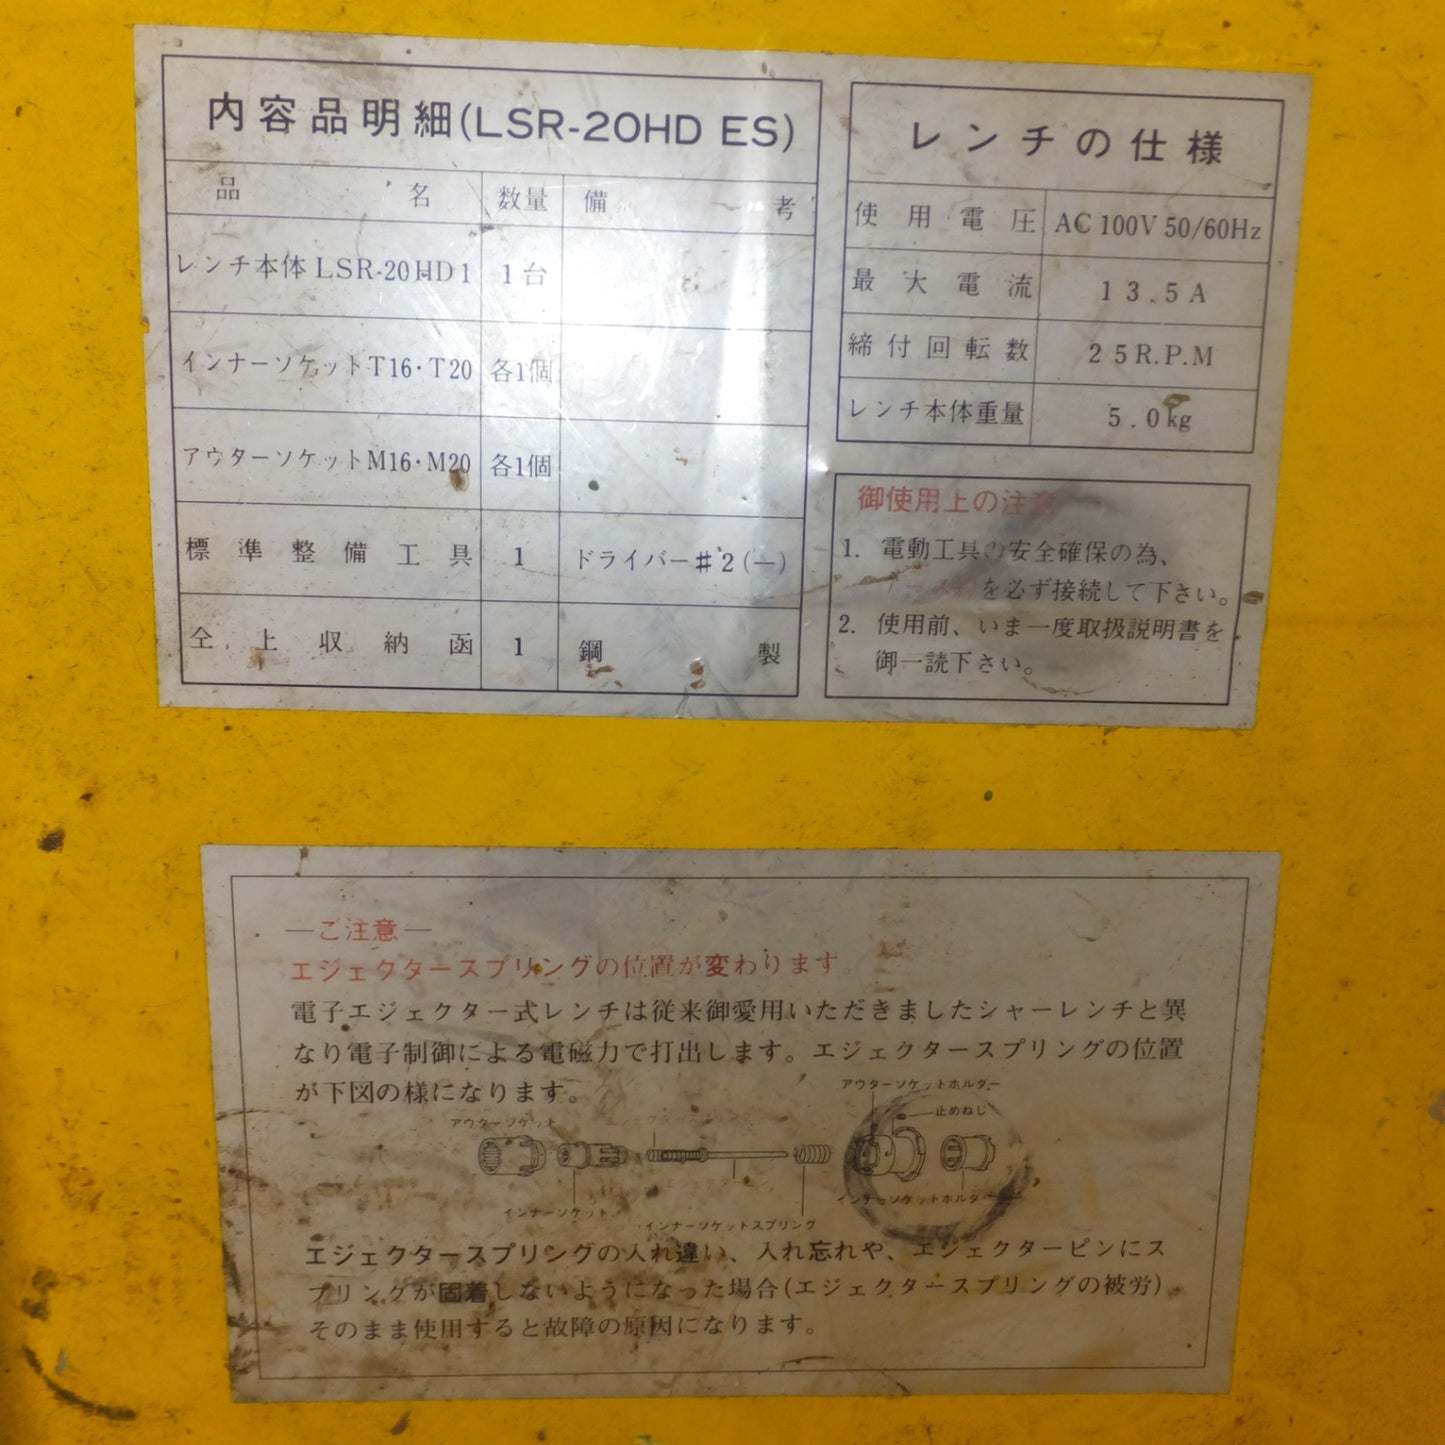 内容品明細(LSR-20HD ES)
品名 数量 備考
レンチ本体 LSR-20HD1 1台
インナーソケットT16・T20 各1個
アウターソケットM16・M20 各1個
標準整備工具 1 ドライバー♯2(−)
仝上収納函 1 鋼製
レンチの仕様
使用電圧 AC 100V 50/60Hz
最大電流 13.5A
締付回転数 25R.P.M
レンチ本体重量 5.0kg
御使用上の注意
1. 電動工具の安全確保の為、
を必ず接続して下さい。
2. 使用前、いま一度取扱説明書を
御一読下さい。
―ご注意―
エジェクタースプリングの位置が変わります。
電子エジェクター式レンチは従来御愛用いただきましたシャーレンチと異
なり電子制御による電磁力で打出します。エジェクタースプリングの位置
が下図の様になります。
アウターソケットホルダー
止めねじ
アウターソケット
エジェクタースプリング
エジェクターピン
インナーソケットホルダー
インナーソケット
インナーソケットスプリング
エジェクタースプリングの入れ違い、入れ忘れや、エジェクターピンにス
プリングが固着しないようになった場合(エジェクタースプリングの被労)、
そのまま使用すると故障の原因になります。